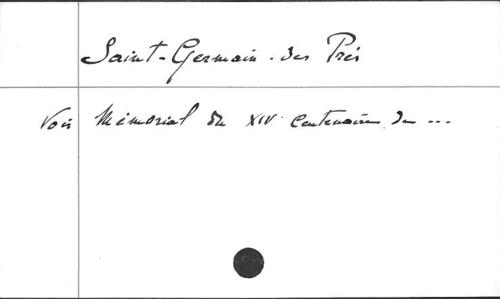 Saint-Germain-des Prés
Voir Mémorial du XIV centenaire de ...